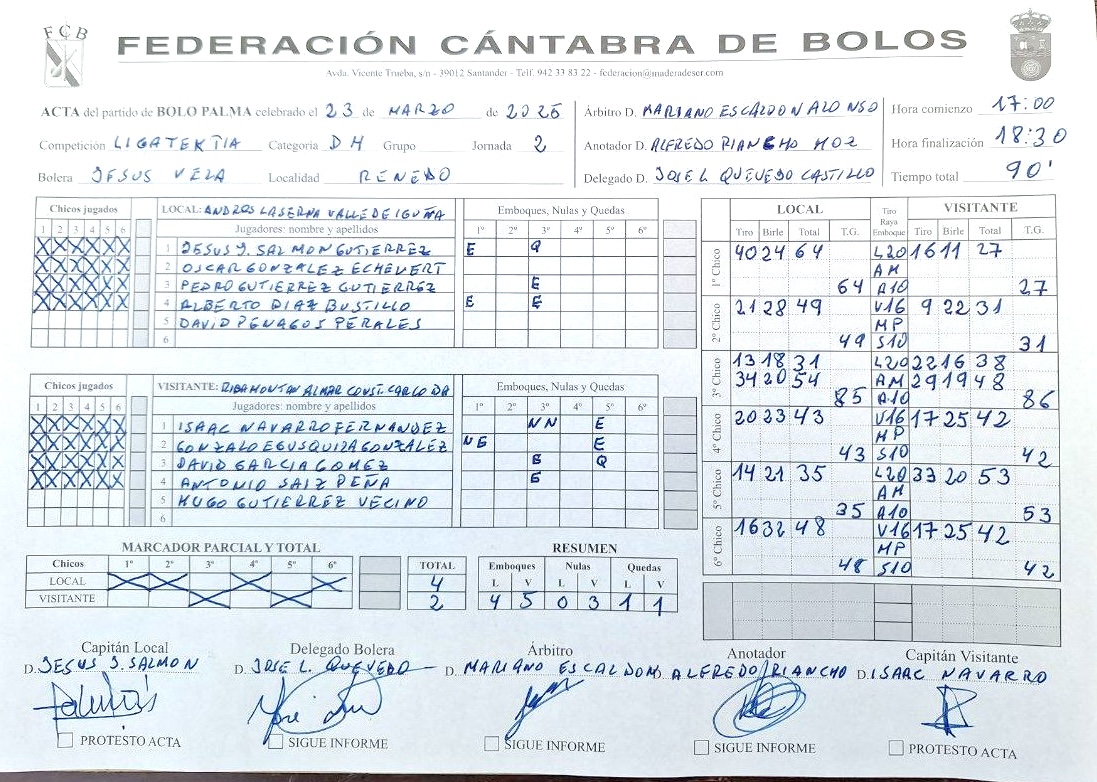 FCB
FEDERACIÓN CÁNTABRA DE BOLOS
Avda. Vicente Trueba, s/n - 39012 Santander - Telf. 942 33 83 22 - federacion@maderadeser.com
ACTA del partido de BOLO PALMA celebrado el 23 de MARZO de 2025
Competición LIGA TEKTIA Categoria DH Grupo Jornada 2
Bolera JESUS VELA Localidad RENEDO
Árbitro D. MARIANO ESCALDON ALONSO
Anotador D. ALFREDO RIANCHO HOZ
Delegado D. JOSE L. QUEVEDO CASTILLO
Hora comienzo 17:00
Hora finalización 18:30
Tiempo total 90'
Chicos jugados LOCAL: ANDROS LASERNA VALLE DE IGUÑA Emboques, Nulas y Quedas
1 2 3 4 5 6 Jugadores: nombre y apellidos 1º 2º 3º 4º 5º 6º
X X X X X X 1 JESUS J. SALMON GUTIERREZ E Q
X X X X X X 2 OSCAR GONZALEZ ECHEVERT
X X X X X X 3 PEDRO GUTIERREZ GUTIERREZ E
X X X X X X 4 ALBERTO DIAZ BUSTILLO E E
5 DAVID PENAGOS PERALES
6
Chicos jugados VISITANTE: RIBAMONTAN ALMAR CONST. CARLO DA Emboques, Nulas y Quedas
1 2 3 4 5 6 Jugadores: nombre y apellidos 1º 2º 3º 4º 5º 6º
X X X X X X 1 ISAAC NAVARRO FERNANDEZ NN E
X X X X X X 2 GONZALO EGUSQUIZA GONZALEZ NE E
X X X X X X 3 DAVID GARCIA GOMEZ E Q
X X X X X X 4 ANTONIO SAIZ PEÑA E
5 HUGO GUTIERREZ VECINO
6
LOCAL Tiro Raya Emboque VISITANTE
Tiro Birle Total T.G. Tiro Birle Total T.G.
1º Chico 40 24 64 L20 16 11 27
AM
64 A10 27
2º Chico 21 28 49 V16 9 22 31
MP
49 S10 31
3º Chico 13 18 31 L20 22 16 38
34 20 54 AM 29 19 48
85 A10 86
4º Chico 20 23 43 V16 17 25 42
MP
43 S10 42
5º Chico 14 21 35 L20 33 20 53
AM
35 A10 53
6º Chico 16 32 48 V16 17 25 42
MP
48 S10 42
MARCADOR PARCIAL Y TOTAL
Chicos 1º 2º 3º 4º 5º 6º TOTAL
LOCAL X X X X 4
VISITANTE X X 2
RESUMEN
Emboques Nulas Quedas
L V L V L V
4 5 0 3 1 1
Capitán Local Delegado Bolera Árbitro Anotador Capitán Visitante
D. JESUS J. SALMON D. JOSE L. QUEVEDO D. MARIANO ESCALDON ALFREDO RIANCHO D. ISAAC NAVARRO
PROTESTO ACTA SIGUE INFORME SIGUE INFORME SIGUE INFORME PROTESTO ACTA